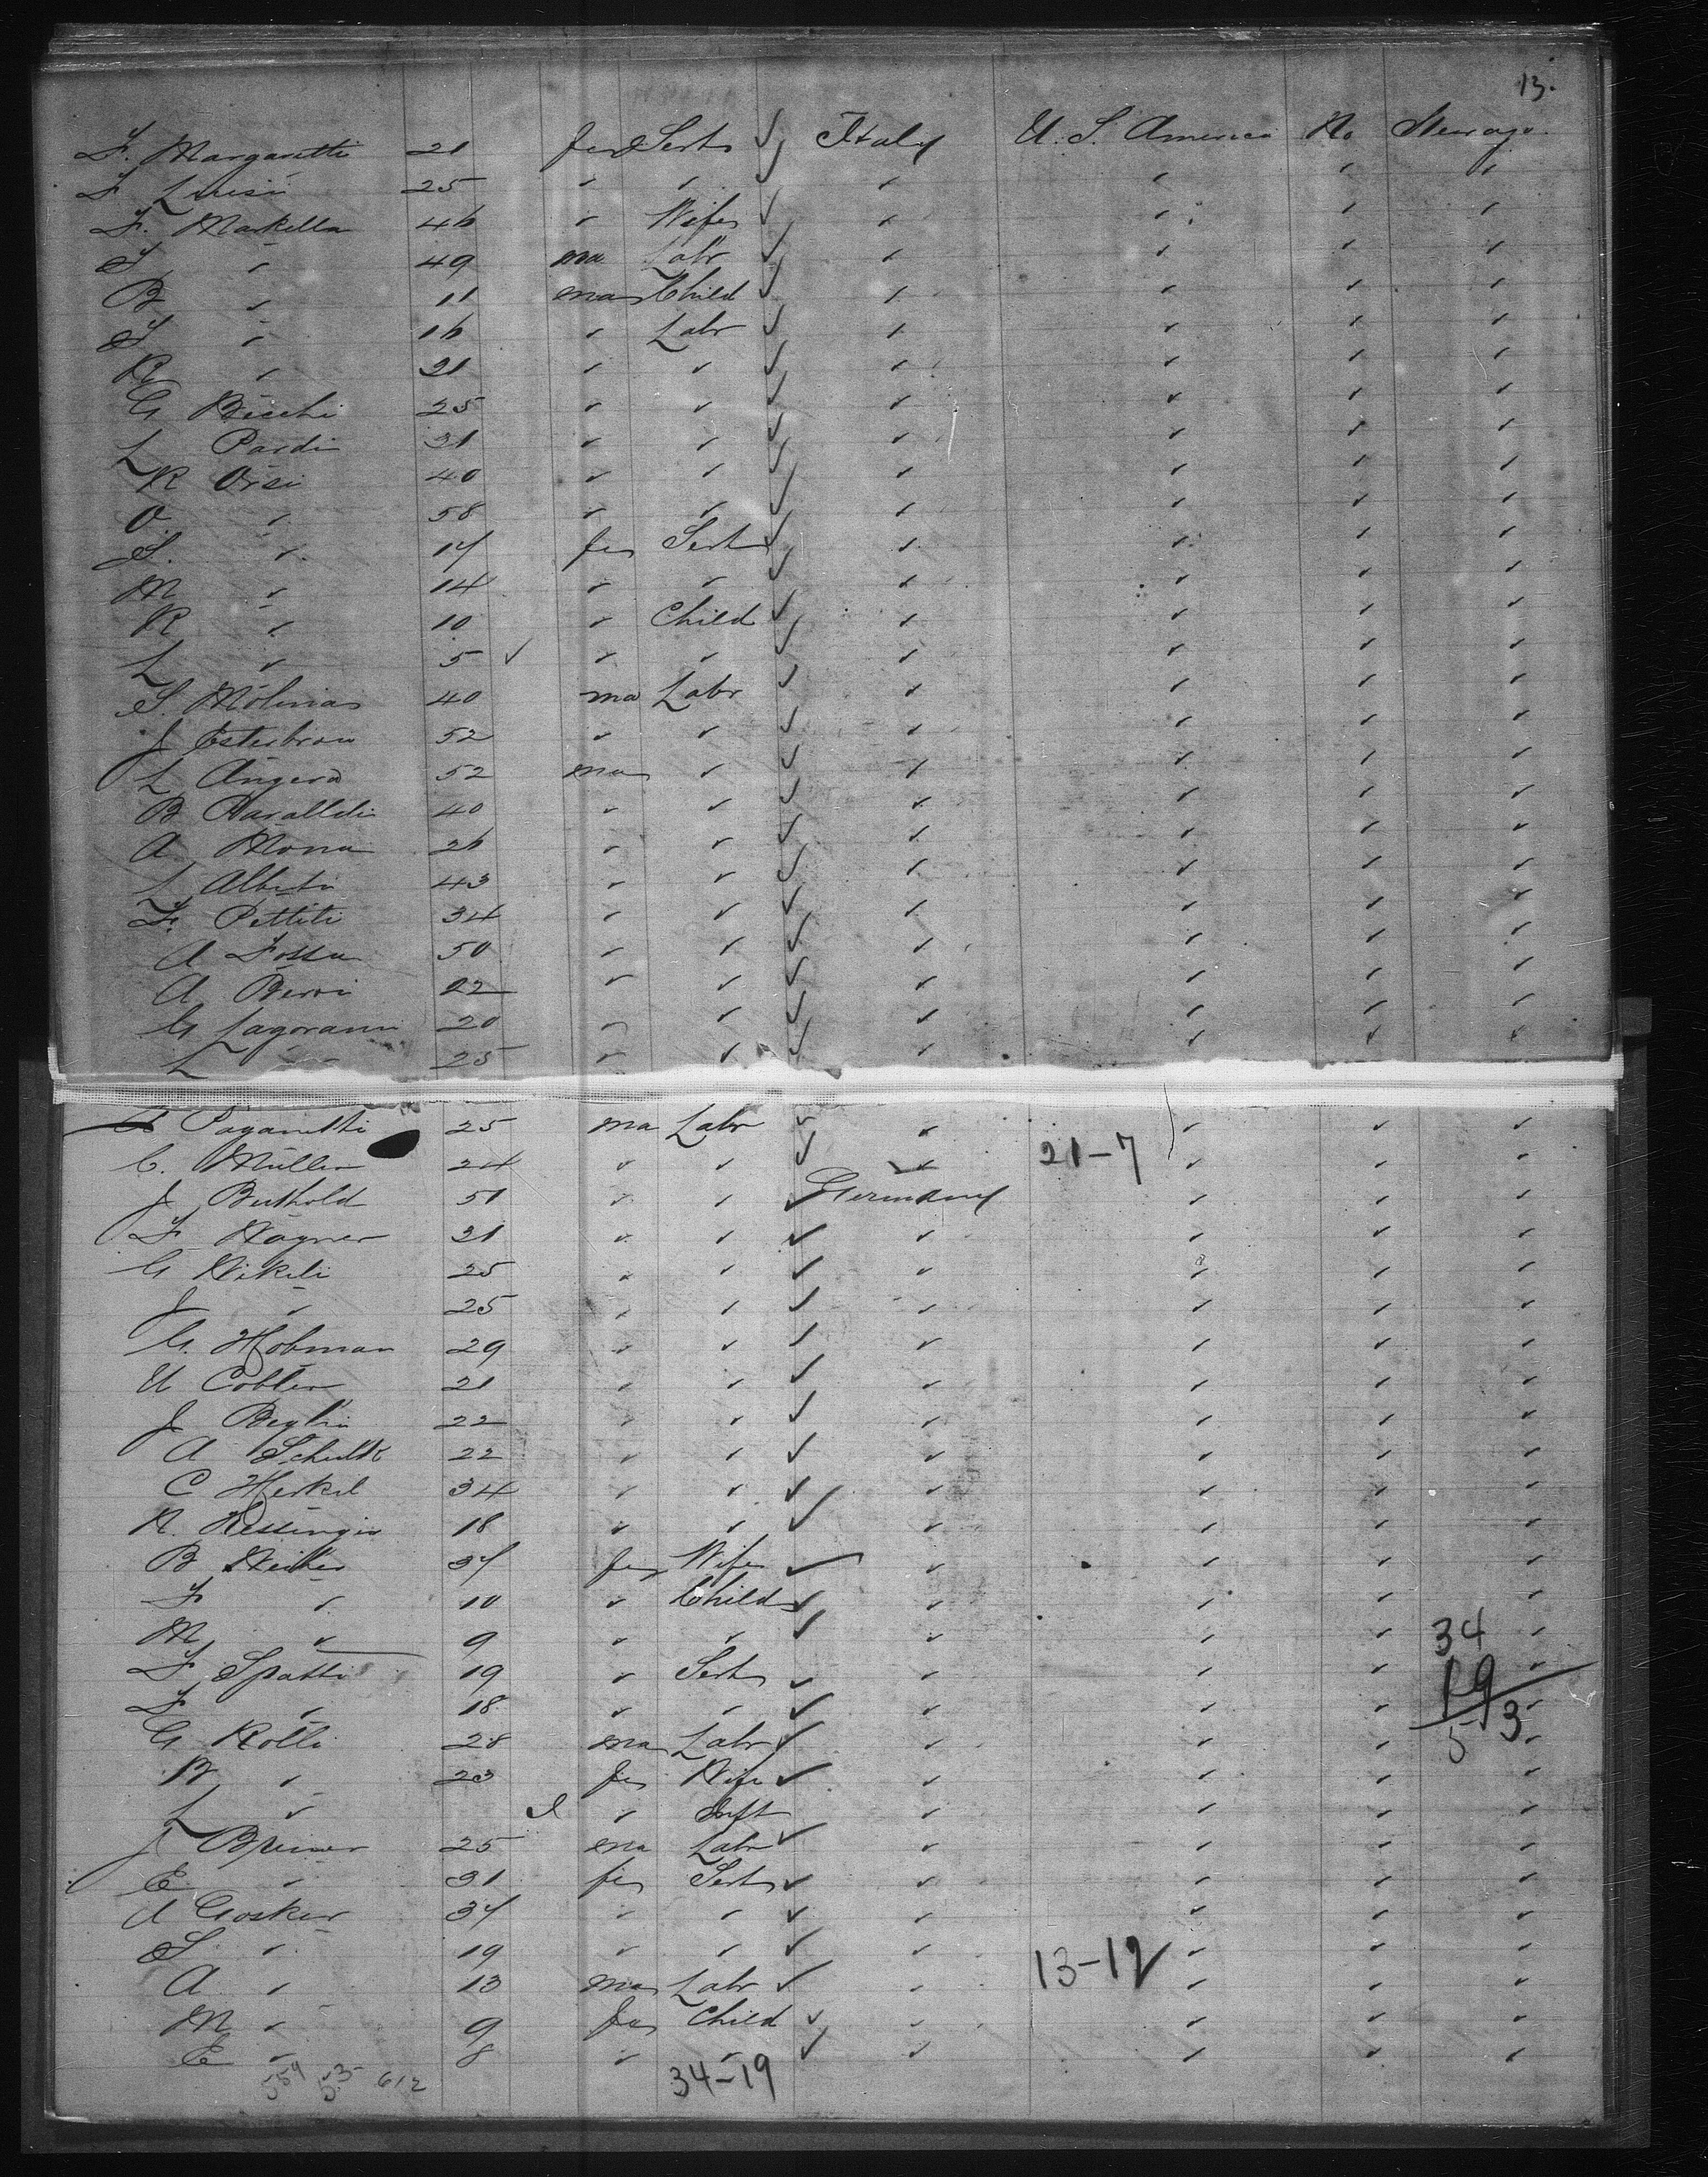 13.
F. Margaretti 21 fe Sert ✓ Italy U. S. America No Steerage
F Luisii 25 " " ✓ " " " "
F. Markella 46 " Wife ✓ " " " "
S " 49 ma Labr ✓ " " " "
B " 11 ma Child ✓ " " " "
S " 16 " Labr ✓ " " " "
R " 21 " " ✓ " " " "
G Bicchi 25 " " ✓ " " " "
L Pardi 31 " " ✓ " " " "
R Orsi 40 " " ✓ " " " "
O. " 58 " " ✓ " " " "
S. " 17 fe Sert ✓ " " " "
M " 14 " " ✓ " " " "
R " 10 " Child ✓ " " " "
L " 5 ✓ " " ✓ " " " "
S. Molinas 40 ma Labr ✓ " " " "
J Esterbrou 52 " " ✓ " " " "
L Angera 52 ma " ✓ " " " "
B 40 " " ✓ " " " "
A Mona 26 " " ✓ " " " "
L Alberti 43 " " ✓ " " " "
F. Pettiti 34 " " ✓ " " " "
A Fossa 50 " " ✓ " " " "
A Berri 22 " " ✓ " " " "
G Lagoranni 20 " " ✓ " " " "
L " 25 " " ✓ " " " "
A Paganetti 25 ma Labr ✓ " " " "
C. Müller 24 " " ✓ " 21-7 " " "
J Buthold 51 " " ✓ Germany " " "
F Wagner 31 " " ✓ " " " "
G Wikili 25 " " ✓ " " " "
J " 25 " " ✓ " " " "
G. Hobman 29 " " ✓ " " " "
U Cobler 21 " " ✓ " " " "
J Beglii 22 " " ✓ " " " "
A Schultz 22 " " ✓ " " " "
C Herkel 34 " " ✓ " " " "
N. Kessinger 18 " " ✓ " " " "
B 37 fe Wife ✓ " " " "
F " 10 " Child ✓ " " " "
M " 9 " " ✓ " " " " 34
F Spatti 19 " Sert ✓ " " " " 19
F " 18 " " ✓ " " " " 53
G Rolli 28 ma Labr ✓ " " " "
B " 23 fe Wife ✓ " " " "
L " " Inft " " " "
J 25 ma Labr ✓ " " " "
E " 31 fe Sert ✓ " " " "
A Gosker 37 " " ✓ " " " "
S " 19 " " ✓ " " " "
A " 13 ma Labr ✓ " 13-12 " " "
M " 9 fe Child ✓ " " " "
E " 8 " " ✓ " " " "
559 53 612 34-19